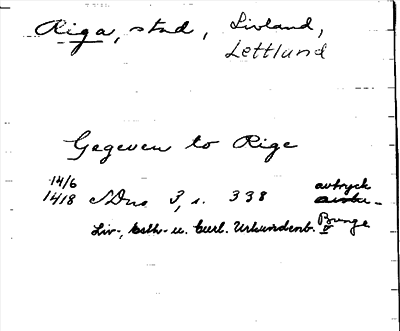 Riga, stad, Livland,
Lettland
Gegeven to Rige
14/6
1418 SDns 3, s. 338 avtryck
Liv-, Esth- u. Curl. Urkundenb. V Bunge